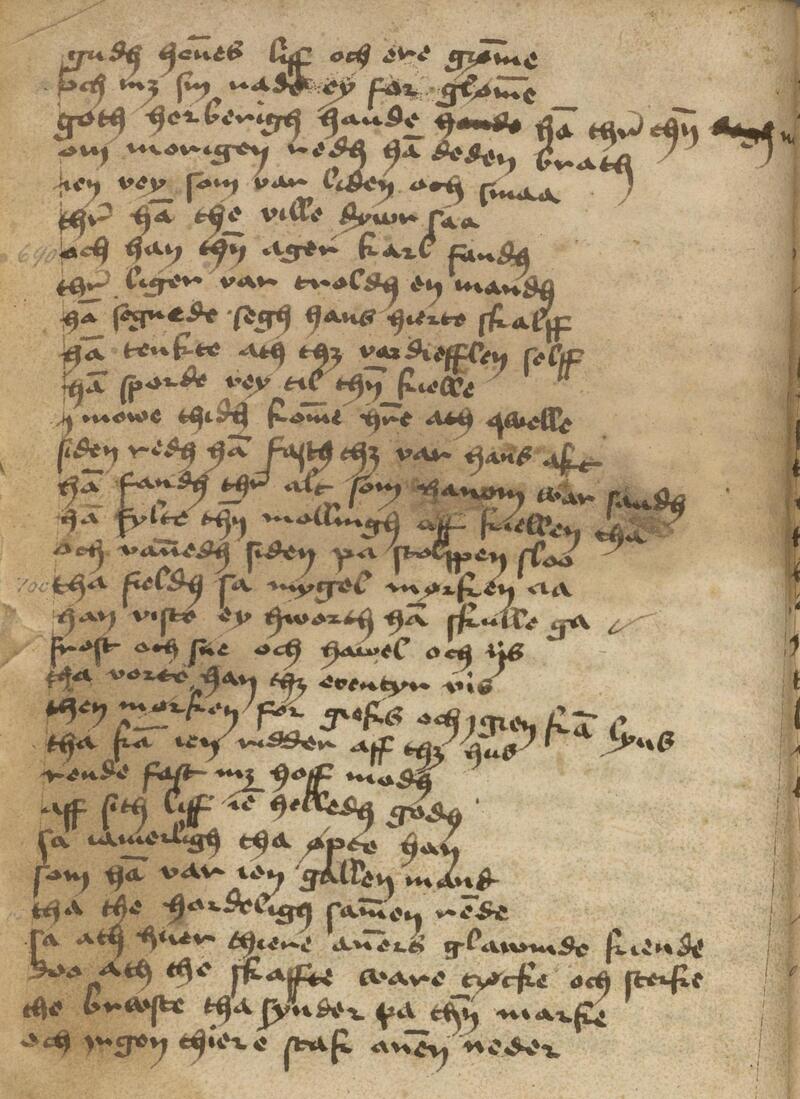 gudh hen̄es liff och ere gøm̄e
och mȝ sin nade ey for gløm̄e
goth herberigh hande hā thr̄ thn̄
om morigen redh hā deden brath
ien vey som var liden och smaa
thr̄ hā the ville dywr saa
690 och han thn̄ ager karl fandh
thr̄ liger var troldh en mandh
hā segnede segh hans hierte skalff
hā tenkte ath thȝ var diefflen selff
hā sporde vey til thn̄ kielle
j mowe thidh kom̄e hr̄e ath qwelle
siden redh hā fasth thȝ var hans akt
hā fandh thr̄ alt som hanom war sandh
hā fylte thn̄ mollingh aff kiellen tha
och van̄edh siden pa stolppen sloo
700 tha fieldh sa mygel mørken aa
han viste ey hworth hā skulle ga
frost och sne och hawel och ijs
tha vorte han thȝ eventyr vis
then mørken for gieks och igien kā lyus
tha kā ien ridder aff thȝ hus
rende fast mȝ hoff modh
aff sith liff iē helledh godh
sa iamerligh tha øpte han
som hā var ien gallen mand
tha the hardeligh sam̄en rēde
sa ath huer thiere an̄ers glawinde kiende
doo ath the skaffte ware tycke och sterke
the brøste tha synder pa thn̄ marke
och ingen thiere stak an̄en neder